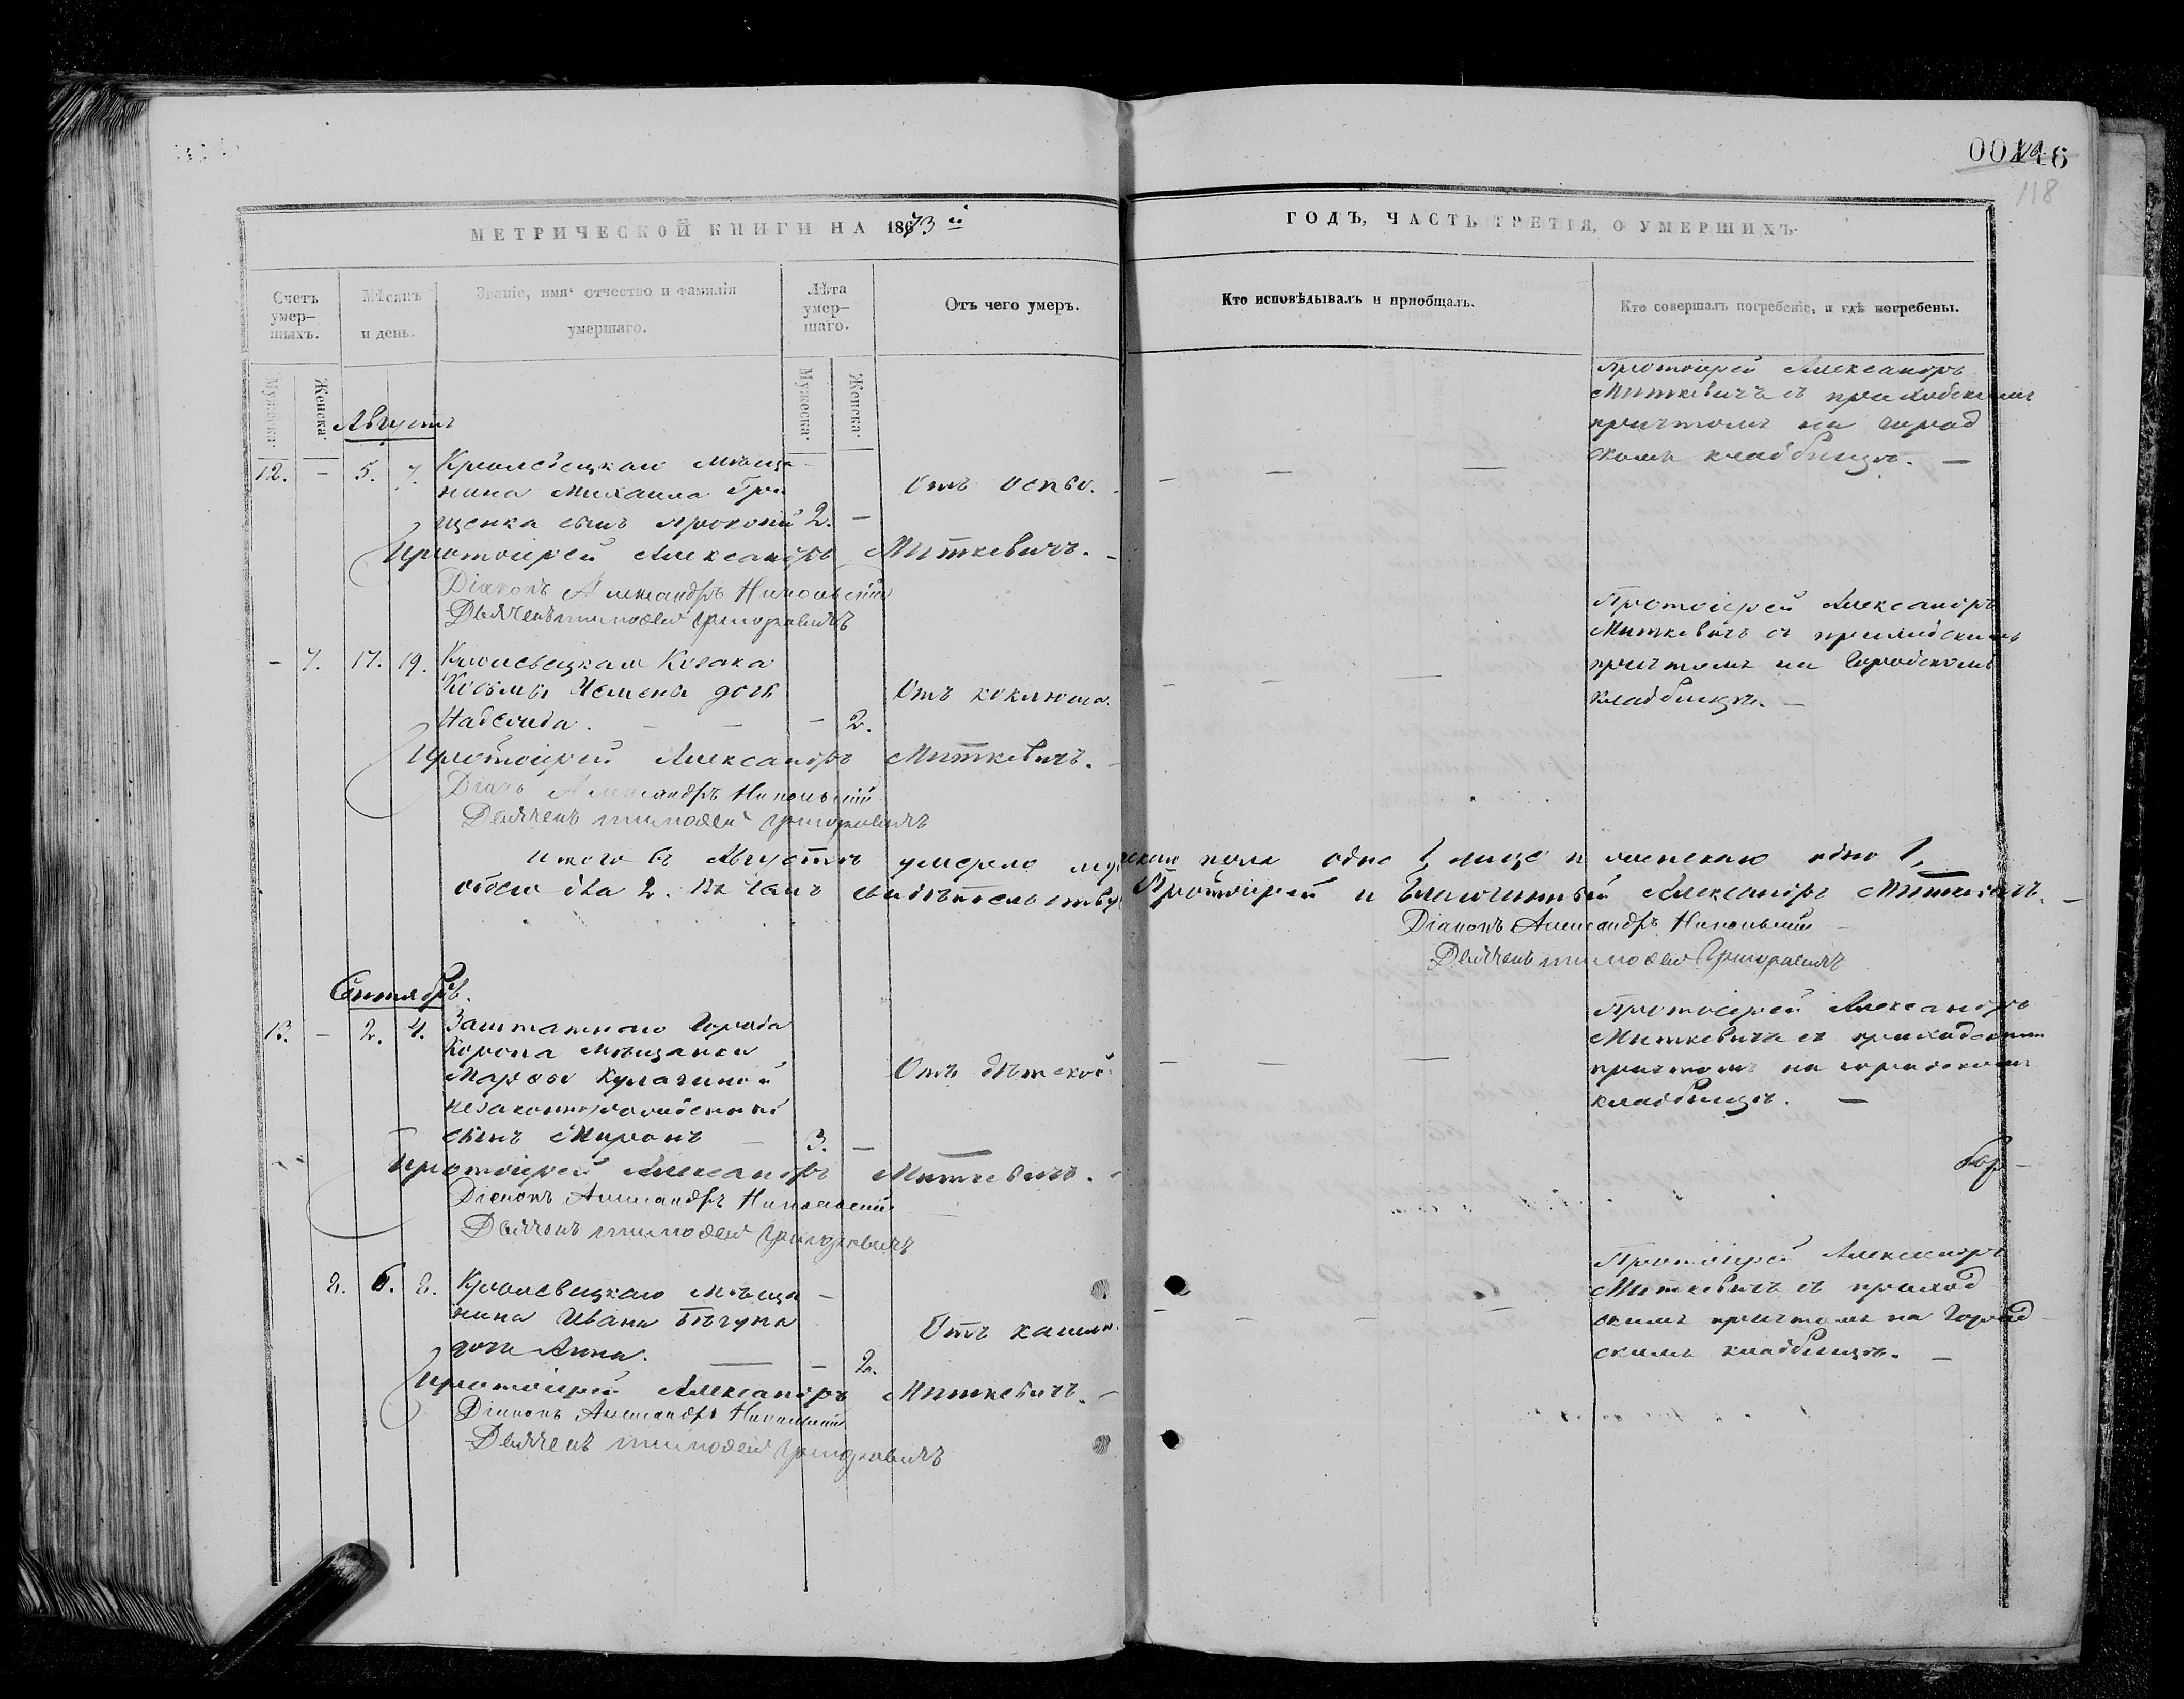 00116
118
МЕТРИЧЕСКОЙ КНИГИ НА 1873й
ГОДЪ, ЧАСТЬ ТРЕТІЯ, О УМЕРШИХЪ.
Счетъ умер-шихъ.
Мѣсяцъ и день.
Званіе, имя, отчество и фамилія умершаго.
Лѣта умер-шаго.
Отъ чего умеръ.
Кто исповѣдывалъ и пріобщалъ.
Кто совершалъ погребеніе, и гдѣ погребены.
Мужеска.
Женска.
Мужеска.
Женска.
Августъ
12. - 5. 7. Кролевецкаго мѣща-
нина Михаила Гри
щенка сынъ Прокопій 2. -
Отъ оспы.
Протоіерей Александръ
Миткевичъ съ приходскимъ
причтомъ на город
скомъ кладбищѣ. -
Протоіерей Александръ Миткевичъ.
Діаконъ Александръ Никольскій
Дьячекъ Тимофей Григоровичъ
- 7. 17. 19. Кролевецкаго Козака
Косьмы дочь
Надежда. - - - 2.
Отъ коклюша.
Протоіерей Александръ
Миткевичъ съ приходскимъ
причтомъ на Городскомъ
кладбищѣ. -
Протоіерей Александръ Миткевичъ.
Діаконъ Александръ Никольскій
Дьячекъ Тимофей Григоровичъ
Итого въ Августѣ умерло мужескаго пола одно 1, лице и женскаго одно 1,
обоего два 2. Въ чемъ свидѣтельствуемъ Протоіерей и Благочинный Александръ Миткевичъ.
Діаконъ Александръ Никольскій
Дьячекъ Тимофей Григоровичъ
Сентябрь.
13. - 2. 4. Заштатнаго Города
Коропа мѣщанки
Марфы
незаконнорожденный
сынъ Миронъ - 3. -
Отъ дѣтской.
Протоіерей Александръ
Миткевичъ съ приходскимъ
причтомъ на городскомъ
кладбищѣ. -
Протоіерей Александръ Миткевичъ.
Діаконъ Александръ Никольскій
Дьячекъ Тимофей Григоровичъ
8. 6. 8. Кролевецкаго мѣща-
нина Ивана Бѣгуна
дочь Анна. - - 2.
Отъ кашля.
Протоіерей Александръ
Миткевичъ съ приход
скимъ причтомъ на Город
скомъ кладбищѣ. -
Протоіерей Александръ Миткевичъ.
Діаконъ Александръ Никольскій
Дьячекъ Тимофей Григоровичъ